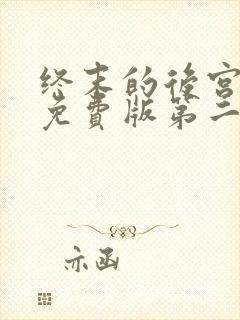 终末的後宫
免費版第二
亦函